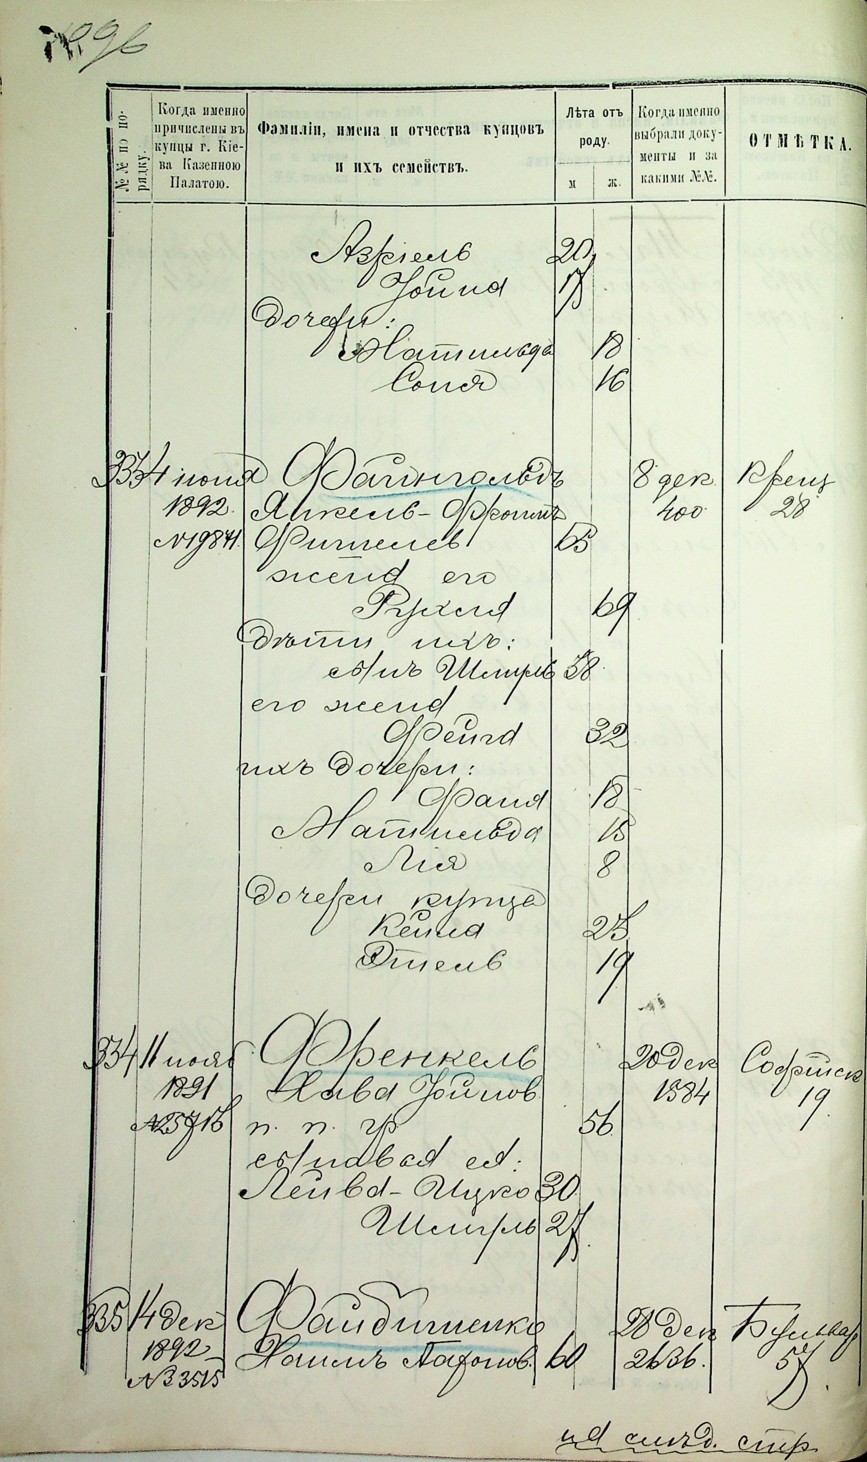 96
№№ по по-
рядку.
Когда именно
причислены въ
купцы г. Кіе-
ва Казенною
Палатою.
Фамиліи, имена и отчества купцовъ
и ихъ семействъ.
Лѣта отъ
роду.
м ж.
Когда именно
выбрали доку-
менты и за
какими №№.
ОТМѢТКА.
Азріель 20
Іойна 17
Дочери:
Матильда 18
Соня 16
333 4 іюня Фагингольдъ 8 дек Крещ
1892 Янкель-Фроимъ 400 28
№19871 Фишелев 65
жена его
Рухля 69
Дѣти ихъ:
сынъ Шмуль 38
его жена
Фейга 32
ихъ дочери:
Фаня 18
Матильда 15
Лія 8
Дочери купца
Кейла 23
Этель 19
334 11 нояб Френкель 20 Дек Софійск
1891 Хава Іойнов 1584 19
п. п. гр 56
сыновья ея:
Лейва-Ицко 30
Шмуль 27
335 14 дек Файбишенко 28 Дек Бульвар
1892 Хаимъ Ааронов. 60 2636. 57
№33515
на слѣд. стр